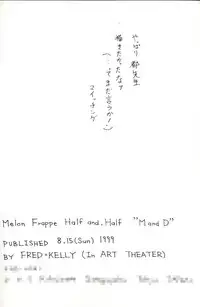 やっぱり 都先生
描きたかったなァ
(…ってまだ言うか!)
スイッチング
Melon Frappe Half and, Half "M and D"
PUBLISHED 8.15(Sun) 1999
BY FRED+KELLY (In ART THEATER)